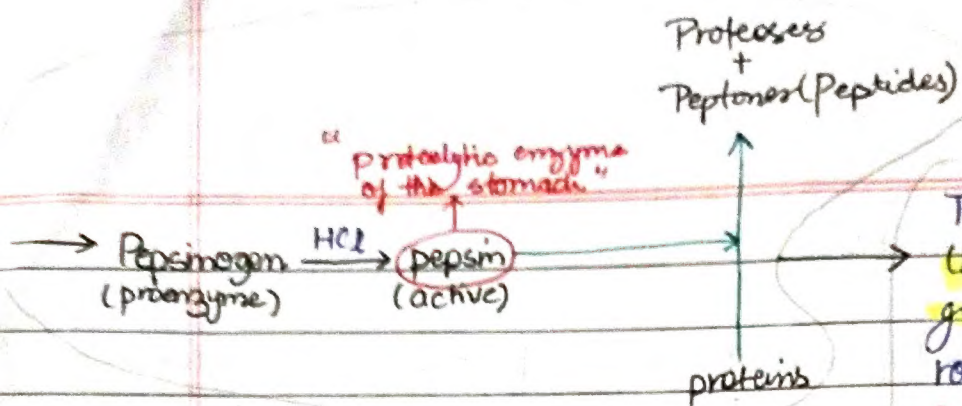 Proteoses
+
Peptones (Peptides)
"proteolytic enzyme
of the stomach"
Pepsinogen HCl pepsin
(proenzyme) (active)
proteins